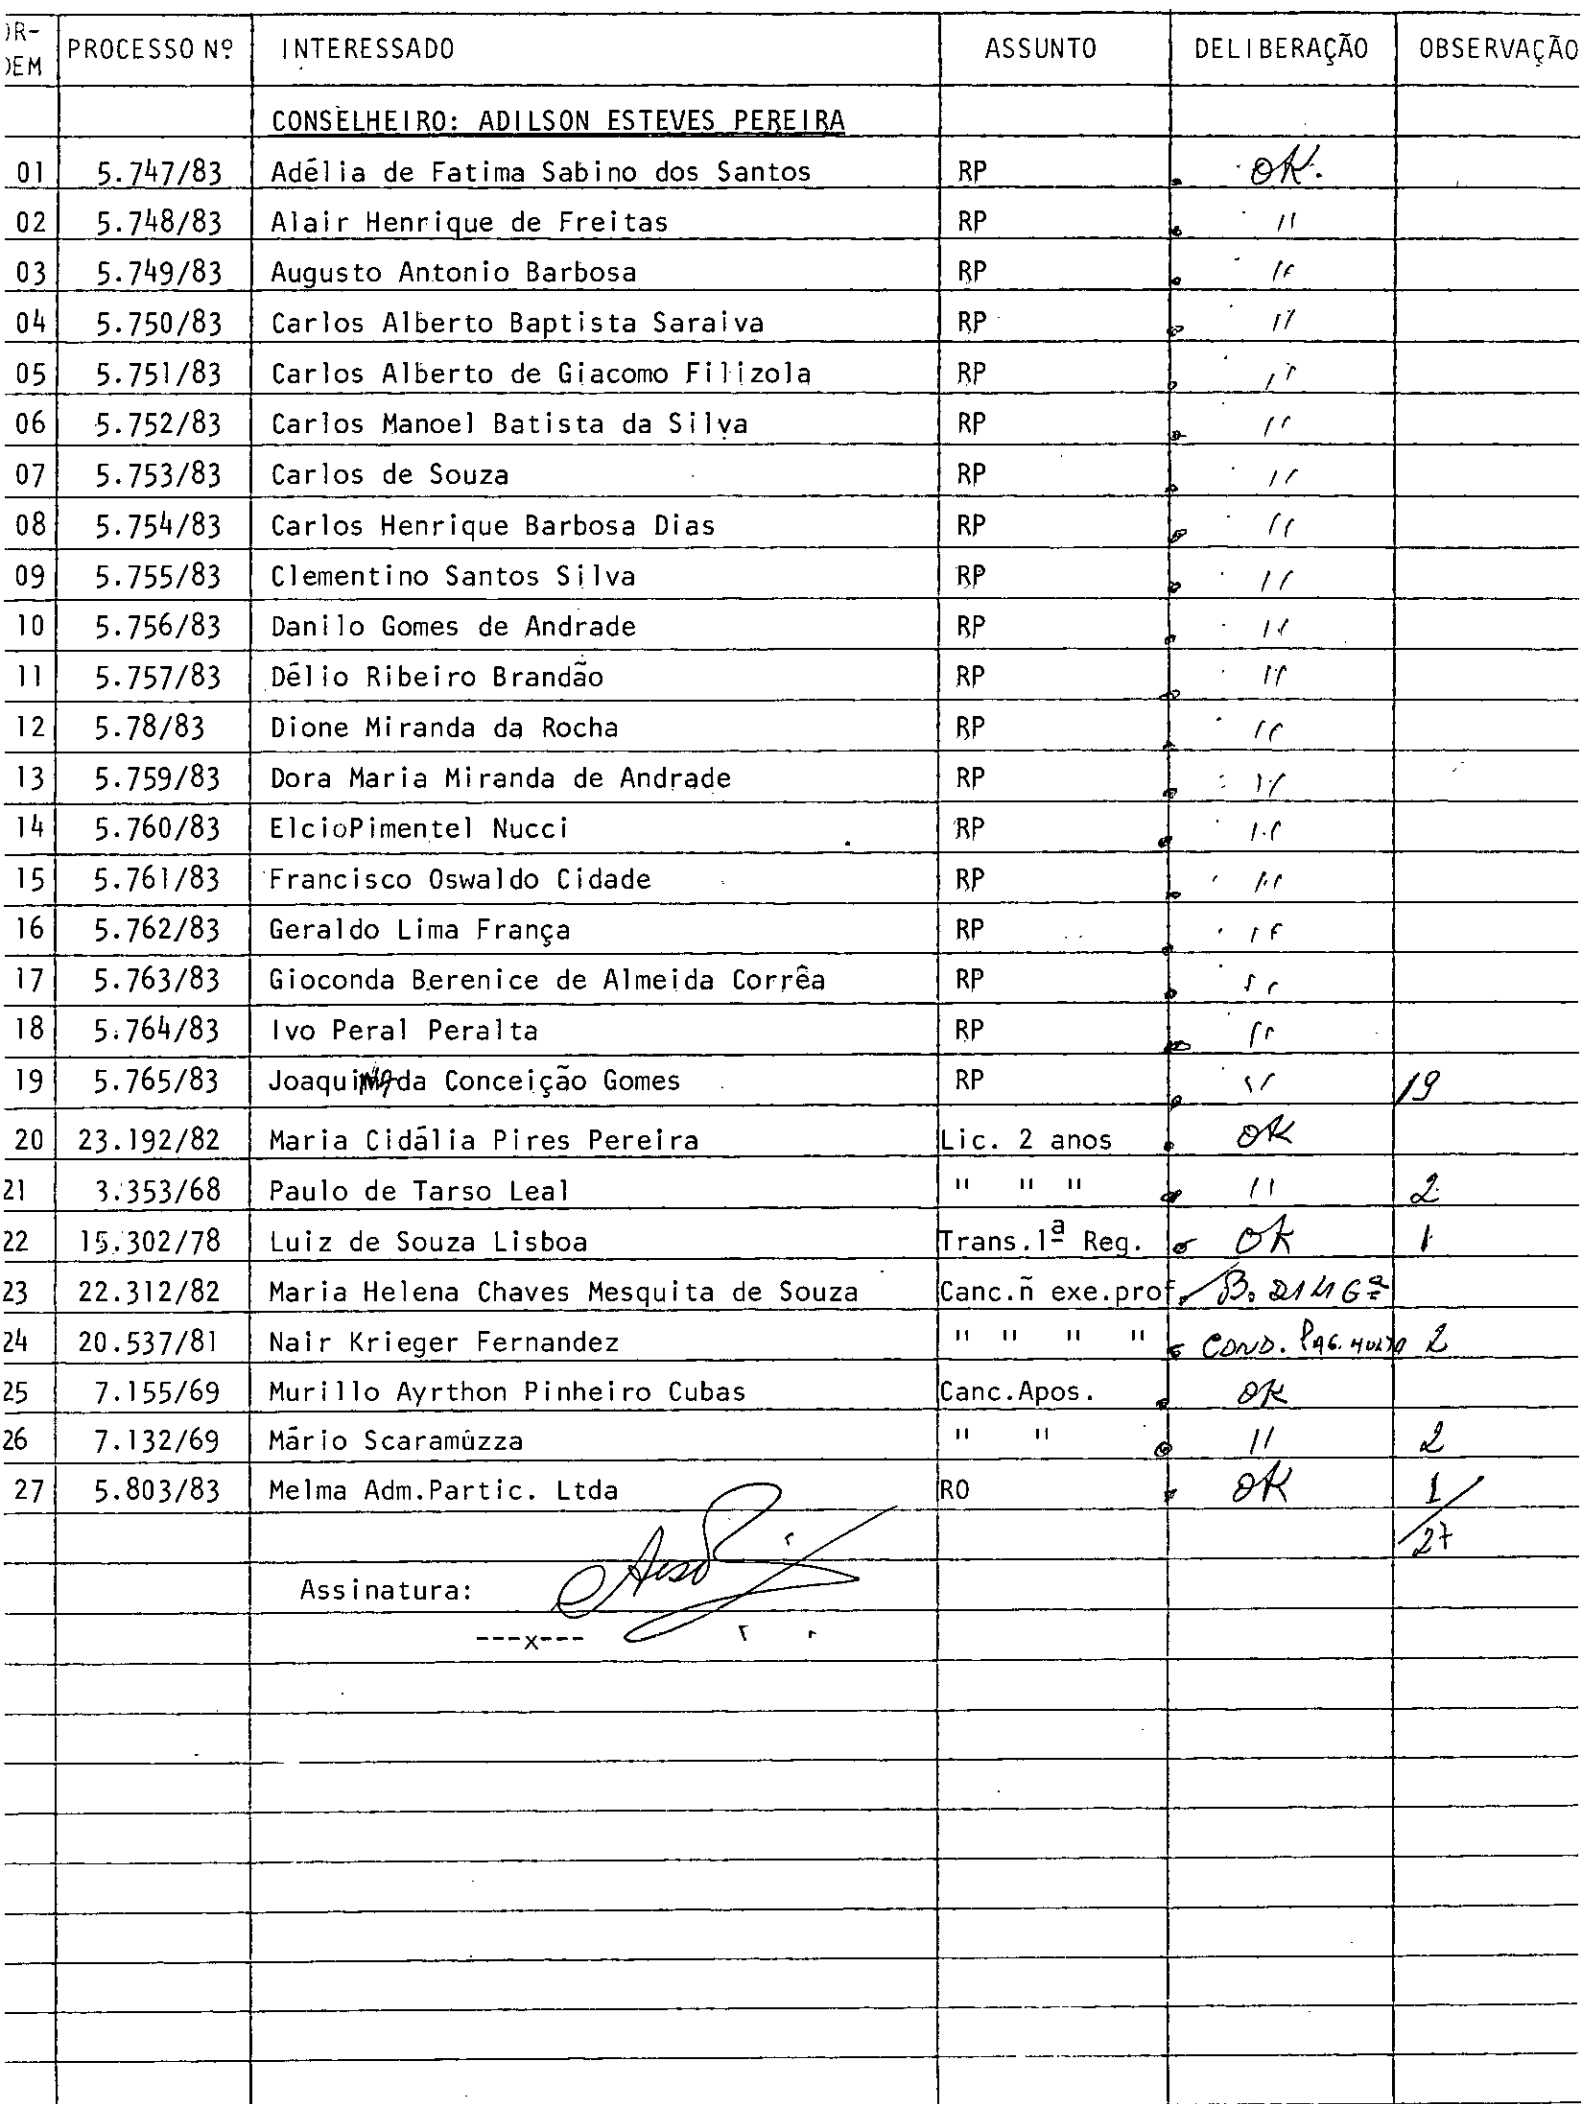 OR- DEM PROCESSO Nº INTERESSADO ASSUNTO DELIBERAÇÃO OBSERVAÇÃO
CONSELHEIRO: ADILSON ESTEVES PEREIRA
01 5.747/83 Adélia de Fatima Sabino dos Santos RP OK.
02 5.748/83 Alair Henrique de Freitas RP "
03 5.749/83 Augusto Antonio Barbosa RP "
04 5.750/83 Carlos Alberto Baptista Saraiva RP "
05 5.751/83 Carlos Alberto de Giacomo Filizola RP "
06 5.752/83 Carlos Manoel Batista da Silva RP "
07 5.753/83 Carlos de Souza RP "
08 5.754/83 Carlos Henrique Barbosa Dias RP "
09 5.755/83 Clementino Santos Silva RP "
10 5.756/83 Danilo Gomes de Andrade RP "
11 5.757/83 Délio Ribeiro Brandão RP "
12 5.78/83 Dione Miranda da Rocha RP "
13 5.759/83 Dora Maria Miranda de Andrade RP "
14 5.760/83 ElcioPimentel Nucci RP "
15 5.761/83 Francisco Oswaldo Cidade RP "
16 5.762/83 Geraldo Lima França RP "
17 5.763/83 Gioconda Berenice de Almeida Corrêa RP "
18 5.764/83 Ivo Peral Peralta RP "
19 5.765/83 Joaquima da Conceição Gomes RP " 19
20 23.192/82 Maria Cidália Pires Pereira Lic. 2 anos OK
21 3.353/68 Paulo de Tarso Leal " " " " 2
22 15.302/78 Luiz de Souza Lisboa Trans.1ª Reg. OK 1
23 22.312/82 Maria Helena Chaves Mesquita de Souza Canc.ñ exe.prof. B.
24 20.537/81 Nair Krieger Fernandez " " " " COND. PAG. MULTA 2
25 7.155/69 Murillo Ayrthon Pinheiro Cubas Canc.Apos. OK
26 7.132/69 Mário Scaramúzza " " " 2
27 5.803/83 Melma Adm.Partic. Ltda RO OK 1
27
Assinatura:
---x---